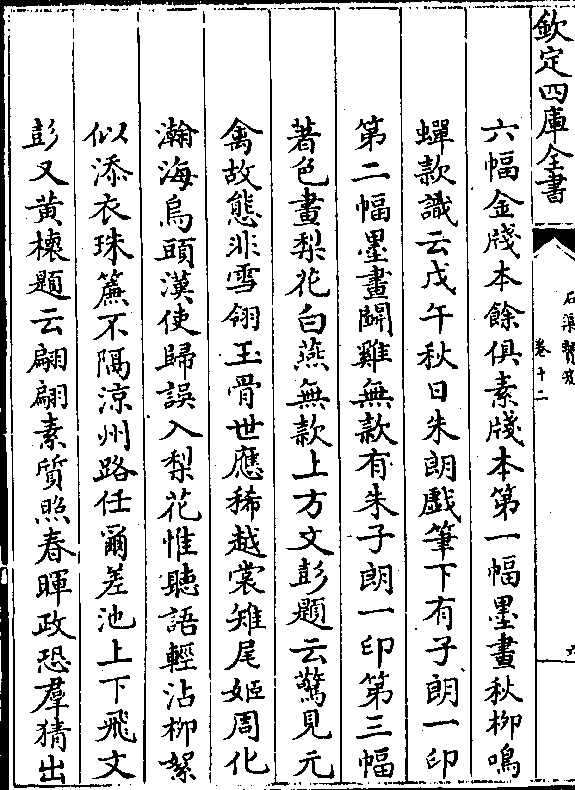 欽定四庫全書
石渠寶笈
卷十二
六
六幅金牋本餘俱素牋本第一幅墨畫秋柳鳴
蟬款識云戊午秋日朱朗戲筆下有子朗一印
第二幅墨畫鬬雞無款有朱子朗一印第三幅
著色畫梨花白燕無款上方文彭題云驚見元
禽故態非雪翎玉骨世應稀越裳雉尾姬周化
瀚海烏頭漢使歸誤入梨花惟聽語輕沾柳絮
似添衣珠簾不隔涼州路任爾差池上下飛文
彭又黄櫰題云翩翩素質照春暉政恐羣猜出